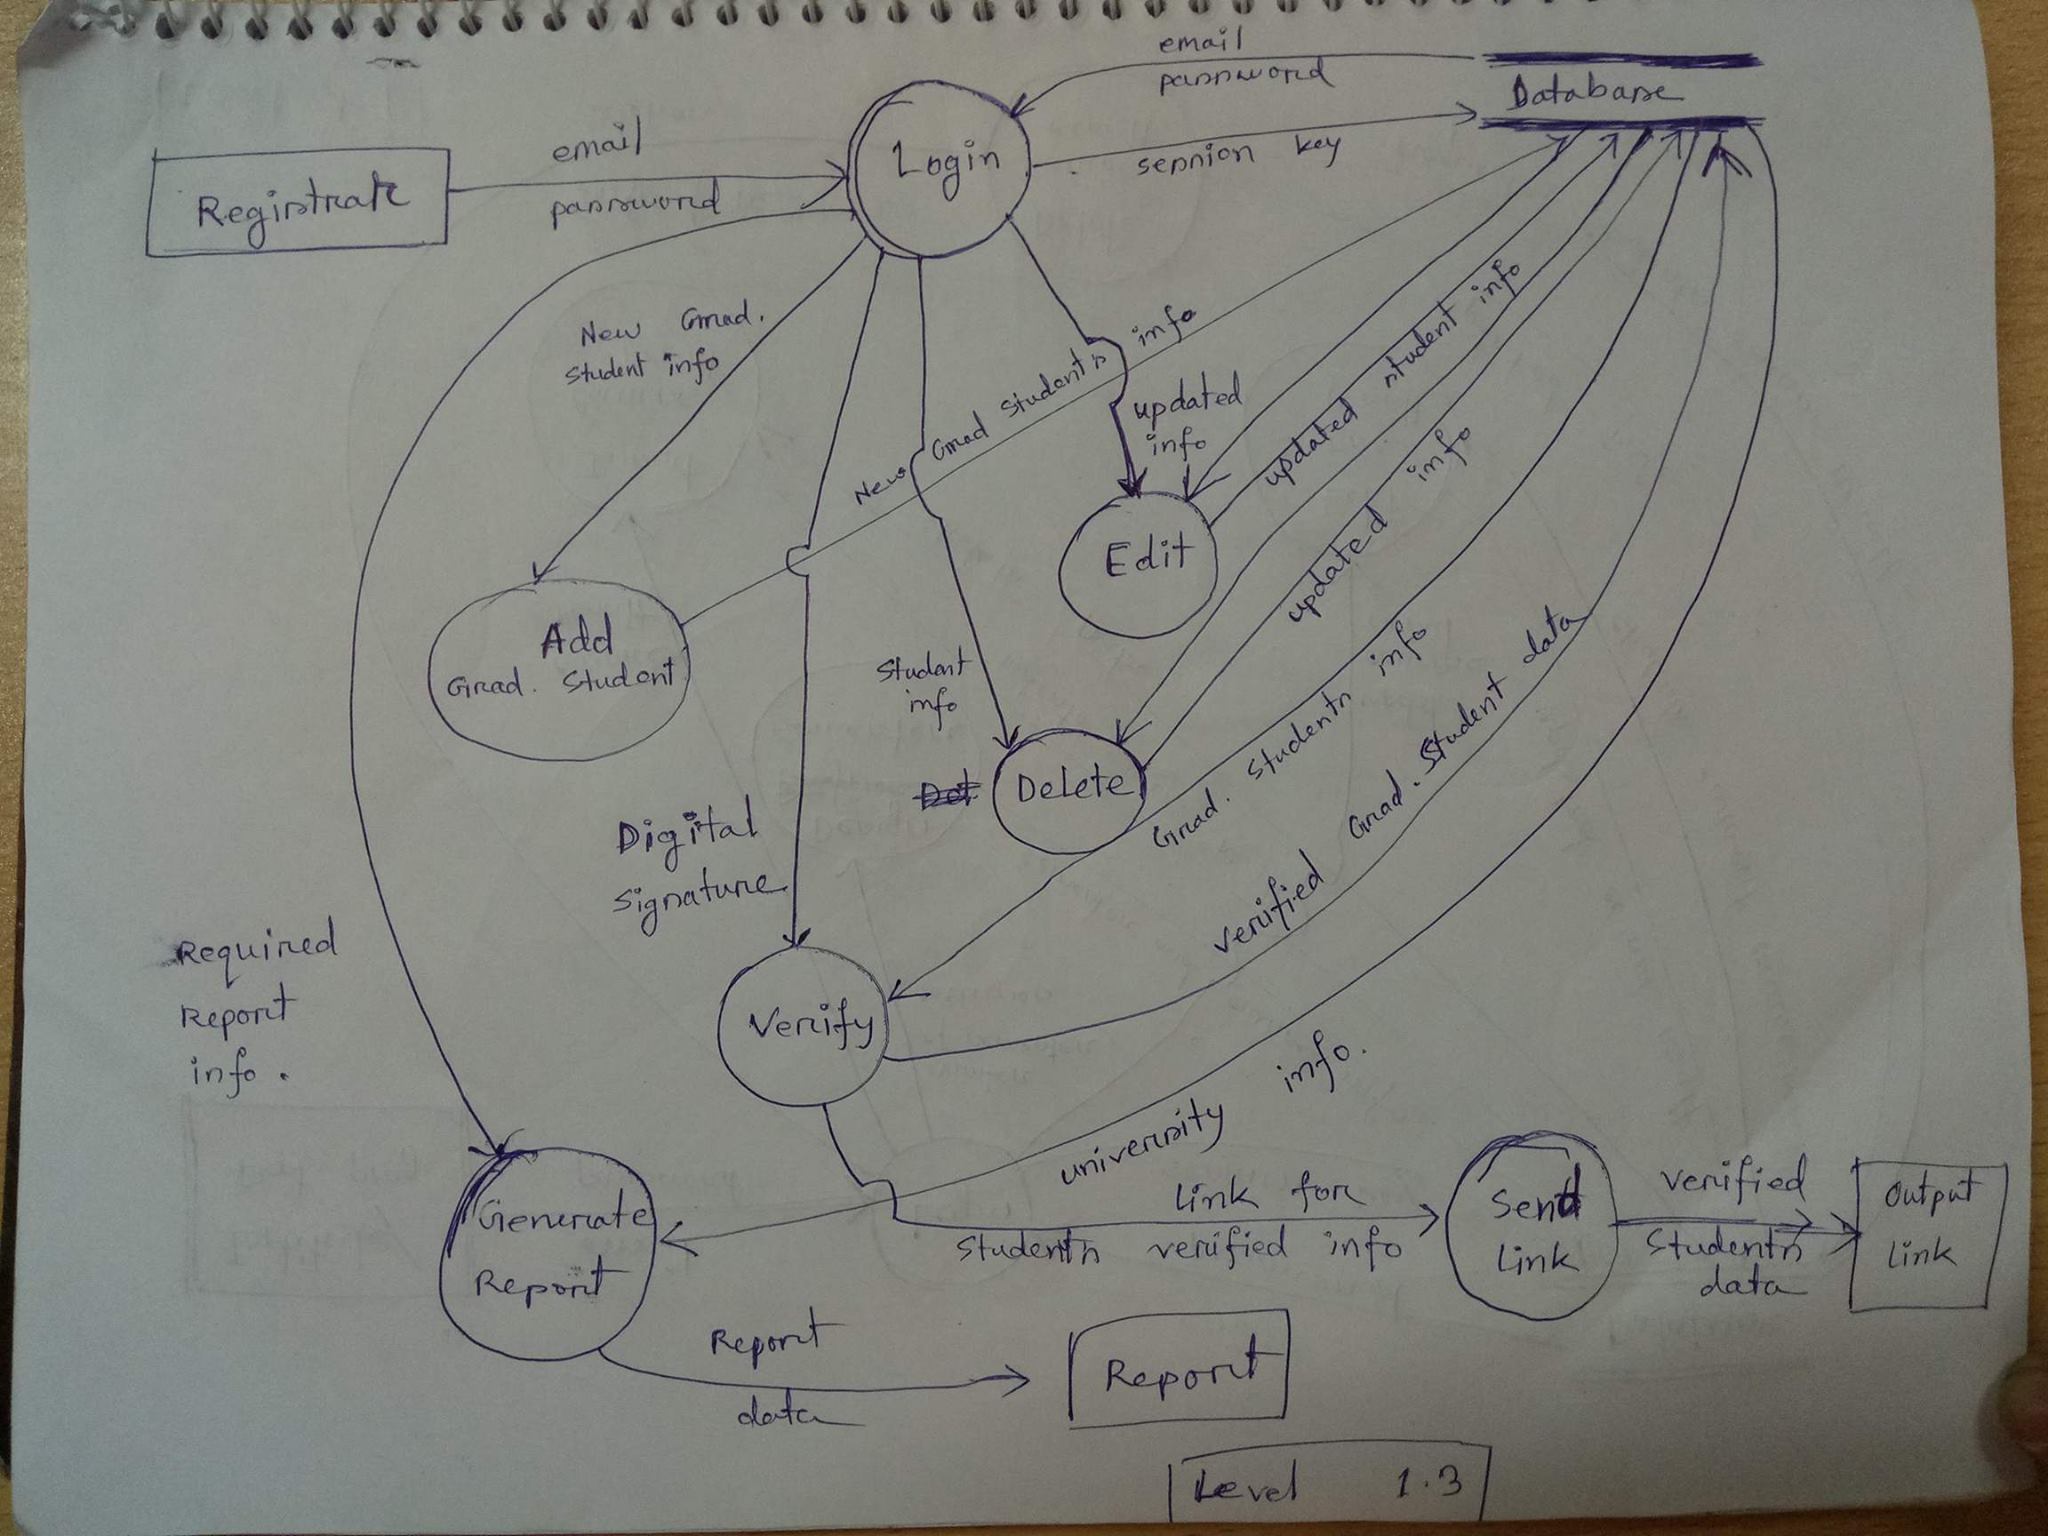 email
password
Database
email
password
Login
session key
Registrar
New Grad.
Student info
New Grad Student's info
updated
info
updated student info
updated info
Edit
Add
Grad. Student
Student
info
Delete
Grad. Students info
Verified Grad. Student data
Digital
Signature
Required
Report
info.
Verify
university info.
Link for
Students verified info
Send
Link
Verified
Students
data
Output
Link
Generate
Report
Report
data
Report
Level 1.3